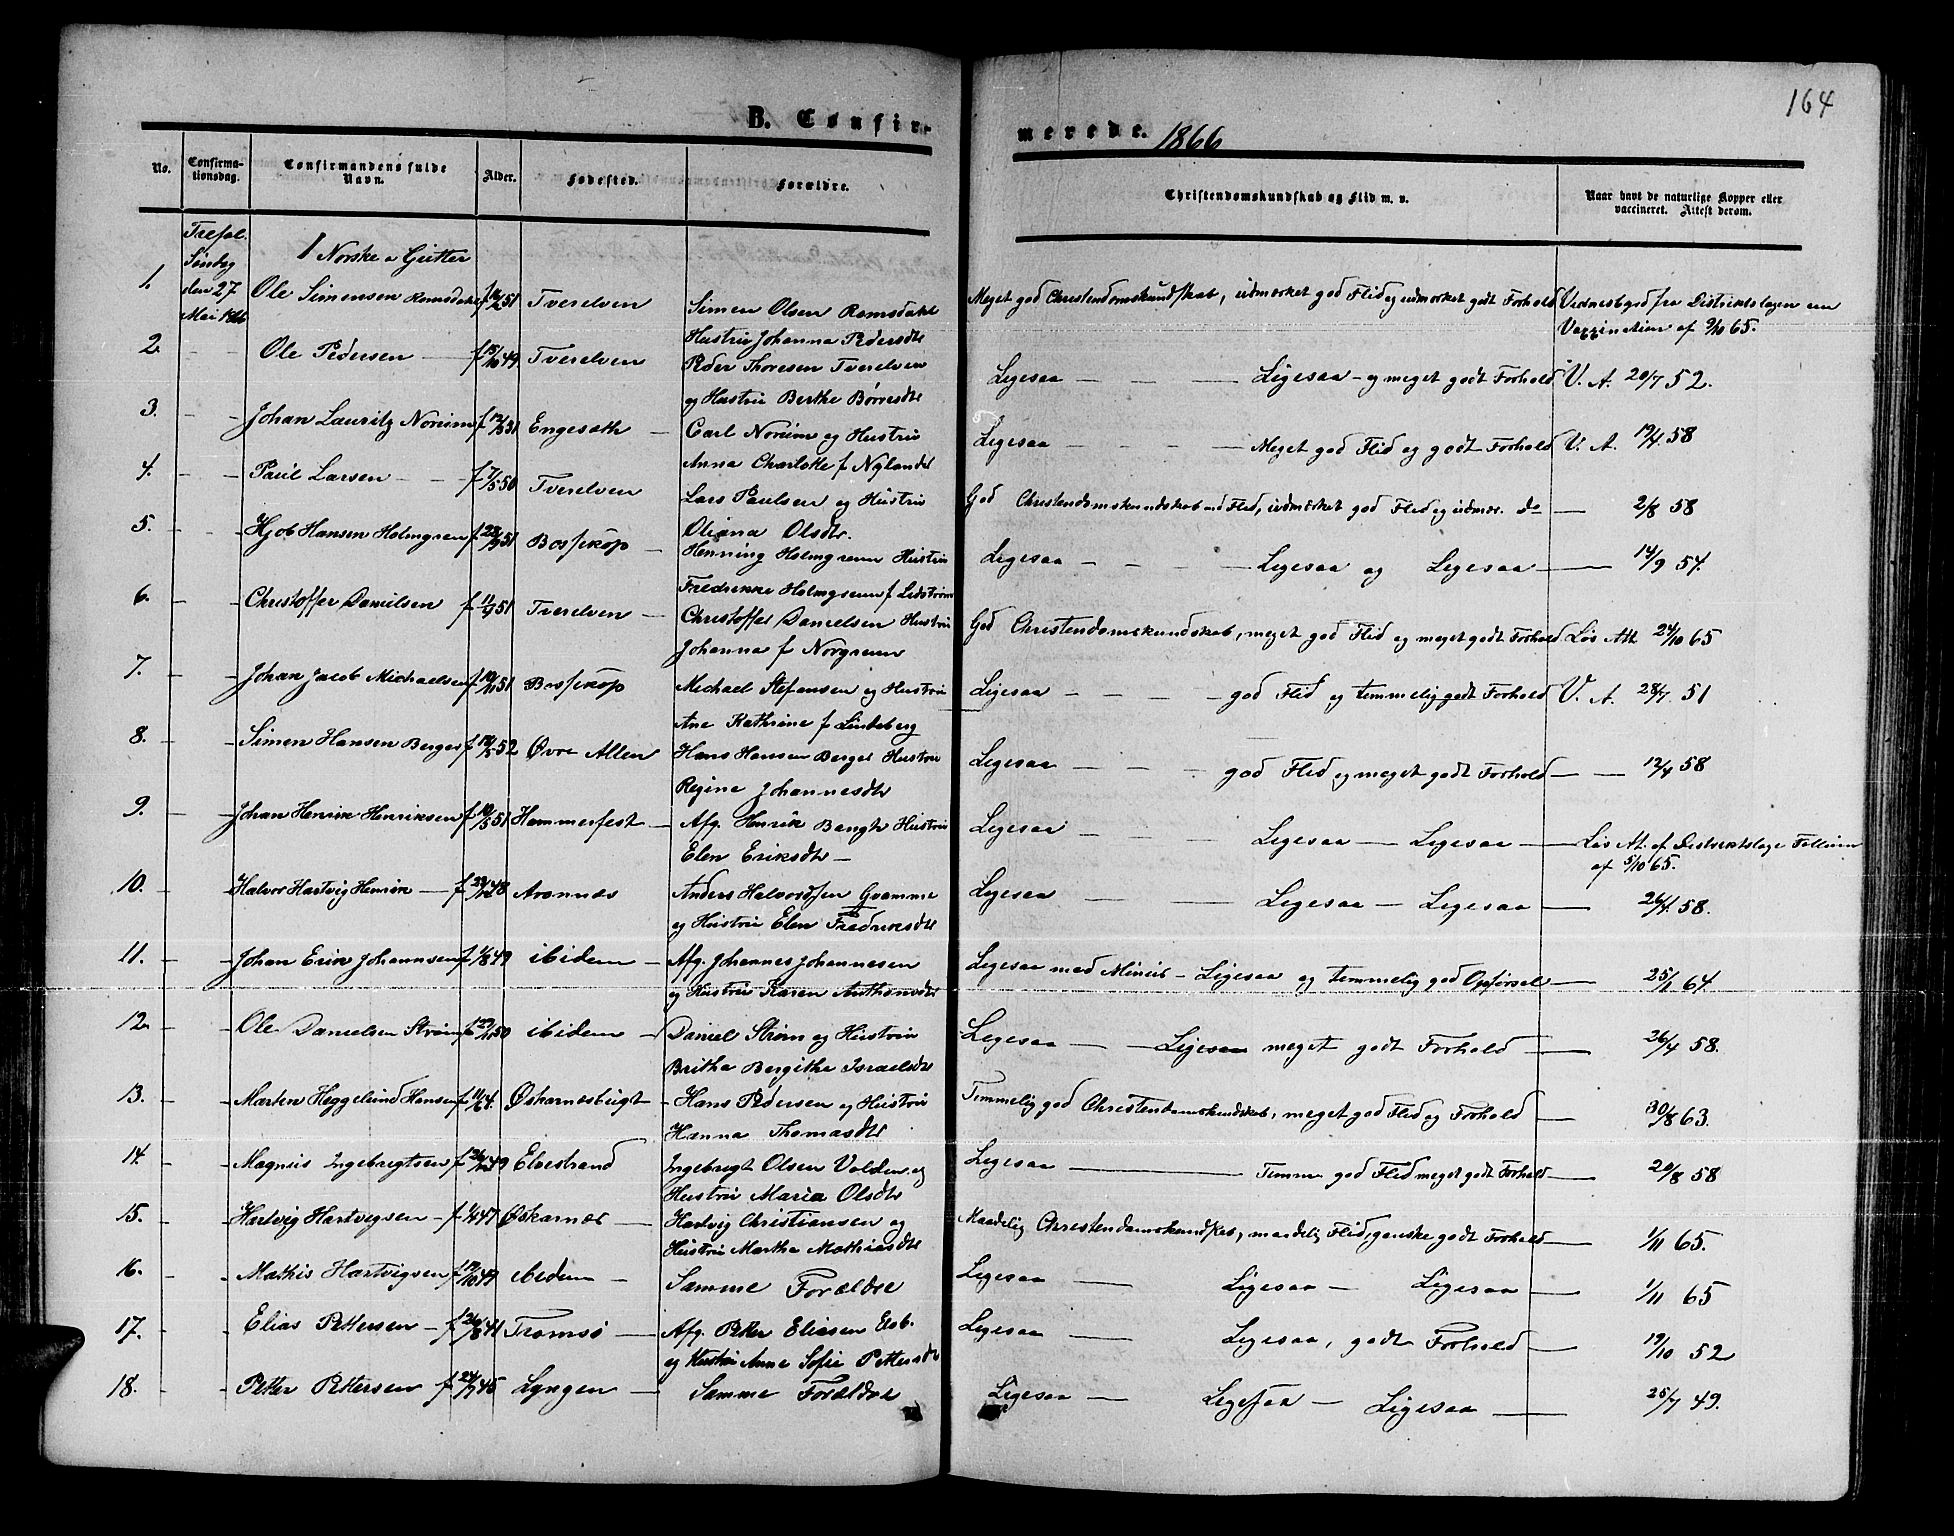 164
B. Confirmerede. 1866
No.
Confirmationsdag.
Confirmandens fulde Navn.
Alder.
Fødested.
Forældre.
Christendomskundskab og Flid m. v.
Naar havt de naturlige Kopper eller vaccineret. Attest derom.
Trefol. Søndag den 27 Mai 1866
Norske Gutter
1. Ole Simensen Romsdahl Tverelven Simen Olsen Romsdahl Hustru Johanna Pedersdtr Meget god Christendomskundskab, udmærket god Flid og udmærket godt Forhold Vidnesbyrd fra Distriktslægen om Vaccination af 9/10 65.
2. Ole Pedersen f 15/10 49 Tverelven Peder Thoresen Tverelven og Hustru Berthe Børresdtr Ligesaa Ligesaa og meget godt Forhold V. A. 20/7 52.
3. Johan Lauritz Norum Carl Norum og Hustru Anna Charlotte f Nylander Ligesaa Meget god Flid og godt Forhold V. A. 19/4 58
4. Paul Larsen f 7/5 50 Tverelven Lars Paulsen og Hustru Oliana Olsdtr. God Christendomskundskab, udmærket god Flid og udmær. do 2/8 58
5. Hjob Hansen Holmgren Bossekop Henning Holmgreen Hustru Fredrikke Holmgreen f Lidstrøm Ligesaa Ligesaa og Ligesaa 14/9 54.
6. Christoffer Danielsen f 11/9 51 Tverelven Christoffer Danielsen Hustru Johanna f Norgreen God Christendomskundskab, meget god Flid og meget godt Forhold Løs Att. 24/10 65
7. Johan Jacob Michaelsen Bossekop Michael Stefensen og Hustru Ane Kathrine f Lindeberg Ligesaa god Flid og temmelig godt Forhold V. A. 28/7 51
8. Simen Hansen Berger Øvre Alten Hans Hansen Berger Hustru Regine Johannesdtr Ligesaa god Flid og meget godt Forhold 12/4 58
9. Johan Henrik Henriksen Hammerfest Afg. Henrik Bangh Hustru Elen Eriksdtr Ligesaa Ligesaa Ligesaa Løs At. af Distriktslæge af 5/10 65.
10. Halvor Hartvig Henrik Aronnæs Anders Halvordsen Qvamme og Hustru Elen Fredriksdtr Ligesaa Ligesaa Ligesaa 26/4 58.
11. Johan Erik Johannsen f 1/8 49 ibidem Afg. Johannes Johannesen og Hustru Karen Anthonsdtr Ligesaa med Minus Ligesaa og temmelig god Opførsel 25/1 64
12. Ole Danielsen Strøm ibidem Daniel Strøm og Hustru Britha Bergitha Israelsdtr Ligesaa Ligesaa meget godt Forhold 26/4 58.
13. Marten Heggelund Hansen Øskarnæsbugt Hans Pedersen og Hustru Hanna Thomasdtr Temmelig god Christendomskundskab, meget god Flid og Forhold 30/8 63.
14. Magnus Ingebrigtsen Elvestrand Ingebrigt Olsen Volden og Hustru Maria Olsdtr Ligesaa Temme. god Flid meget godt Forhold 20/8 58
15. Hartvig Hartvigsen Øskarnæs Hartvig Christiansen og Hustru Martha Mathiasdtr Maadelig Christendomskundskab, maadelig Flid, ganske godt Forhold 1/11 65.
16. Mathis Hartvigsen ibidem Samme Forældre Ligesaa Ligesaa Ligesaa 1/11 65
17. Elias Pettersen Tromsø Afg. Petter Eliasen og Hustru Anne Sofie Pettersdtr Ligesaa Ligesaa, godt Forhold 19/10 52
18. Petter Pettersen f 24/7 45 Lyngen Samme Forældre Ligesaa Ligesaa Ligesaa 25/7 49.